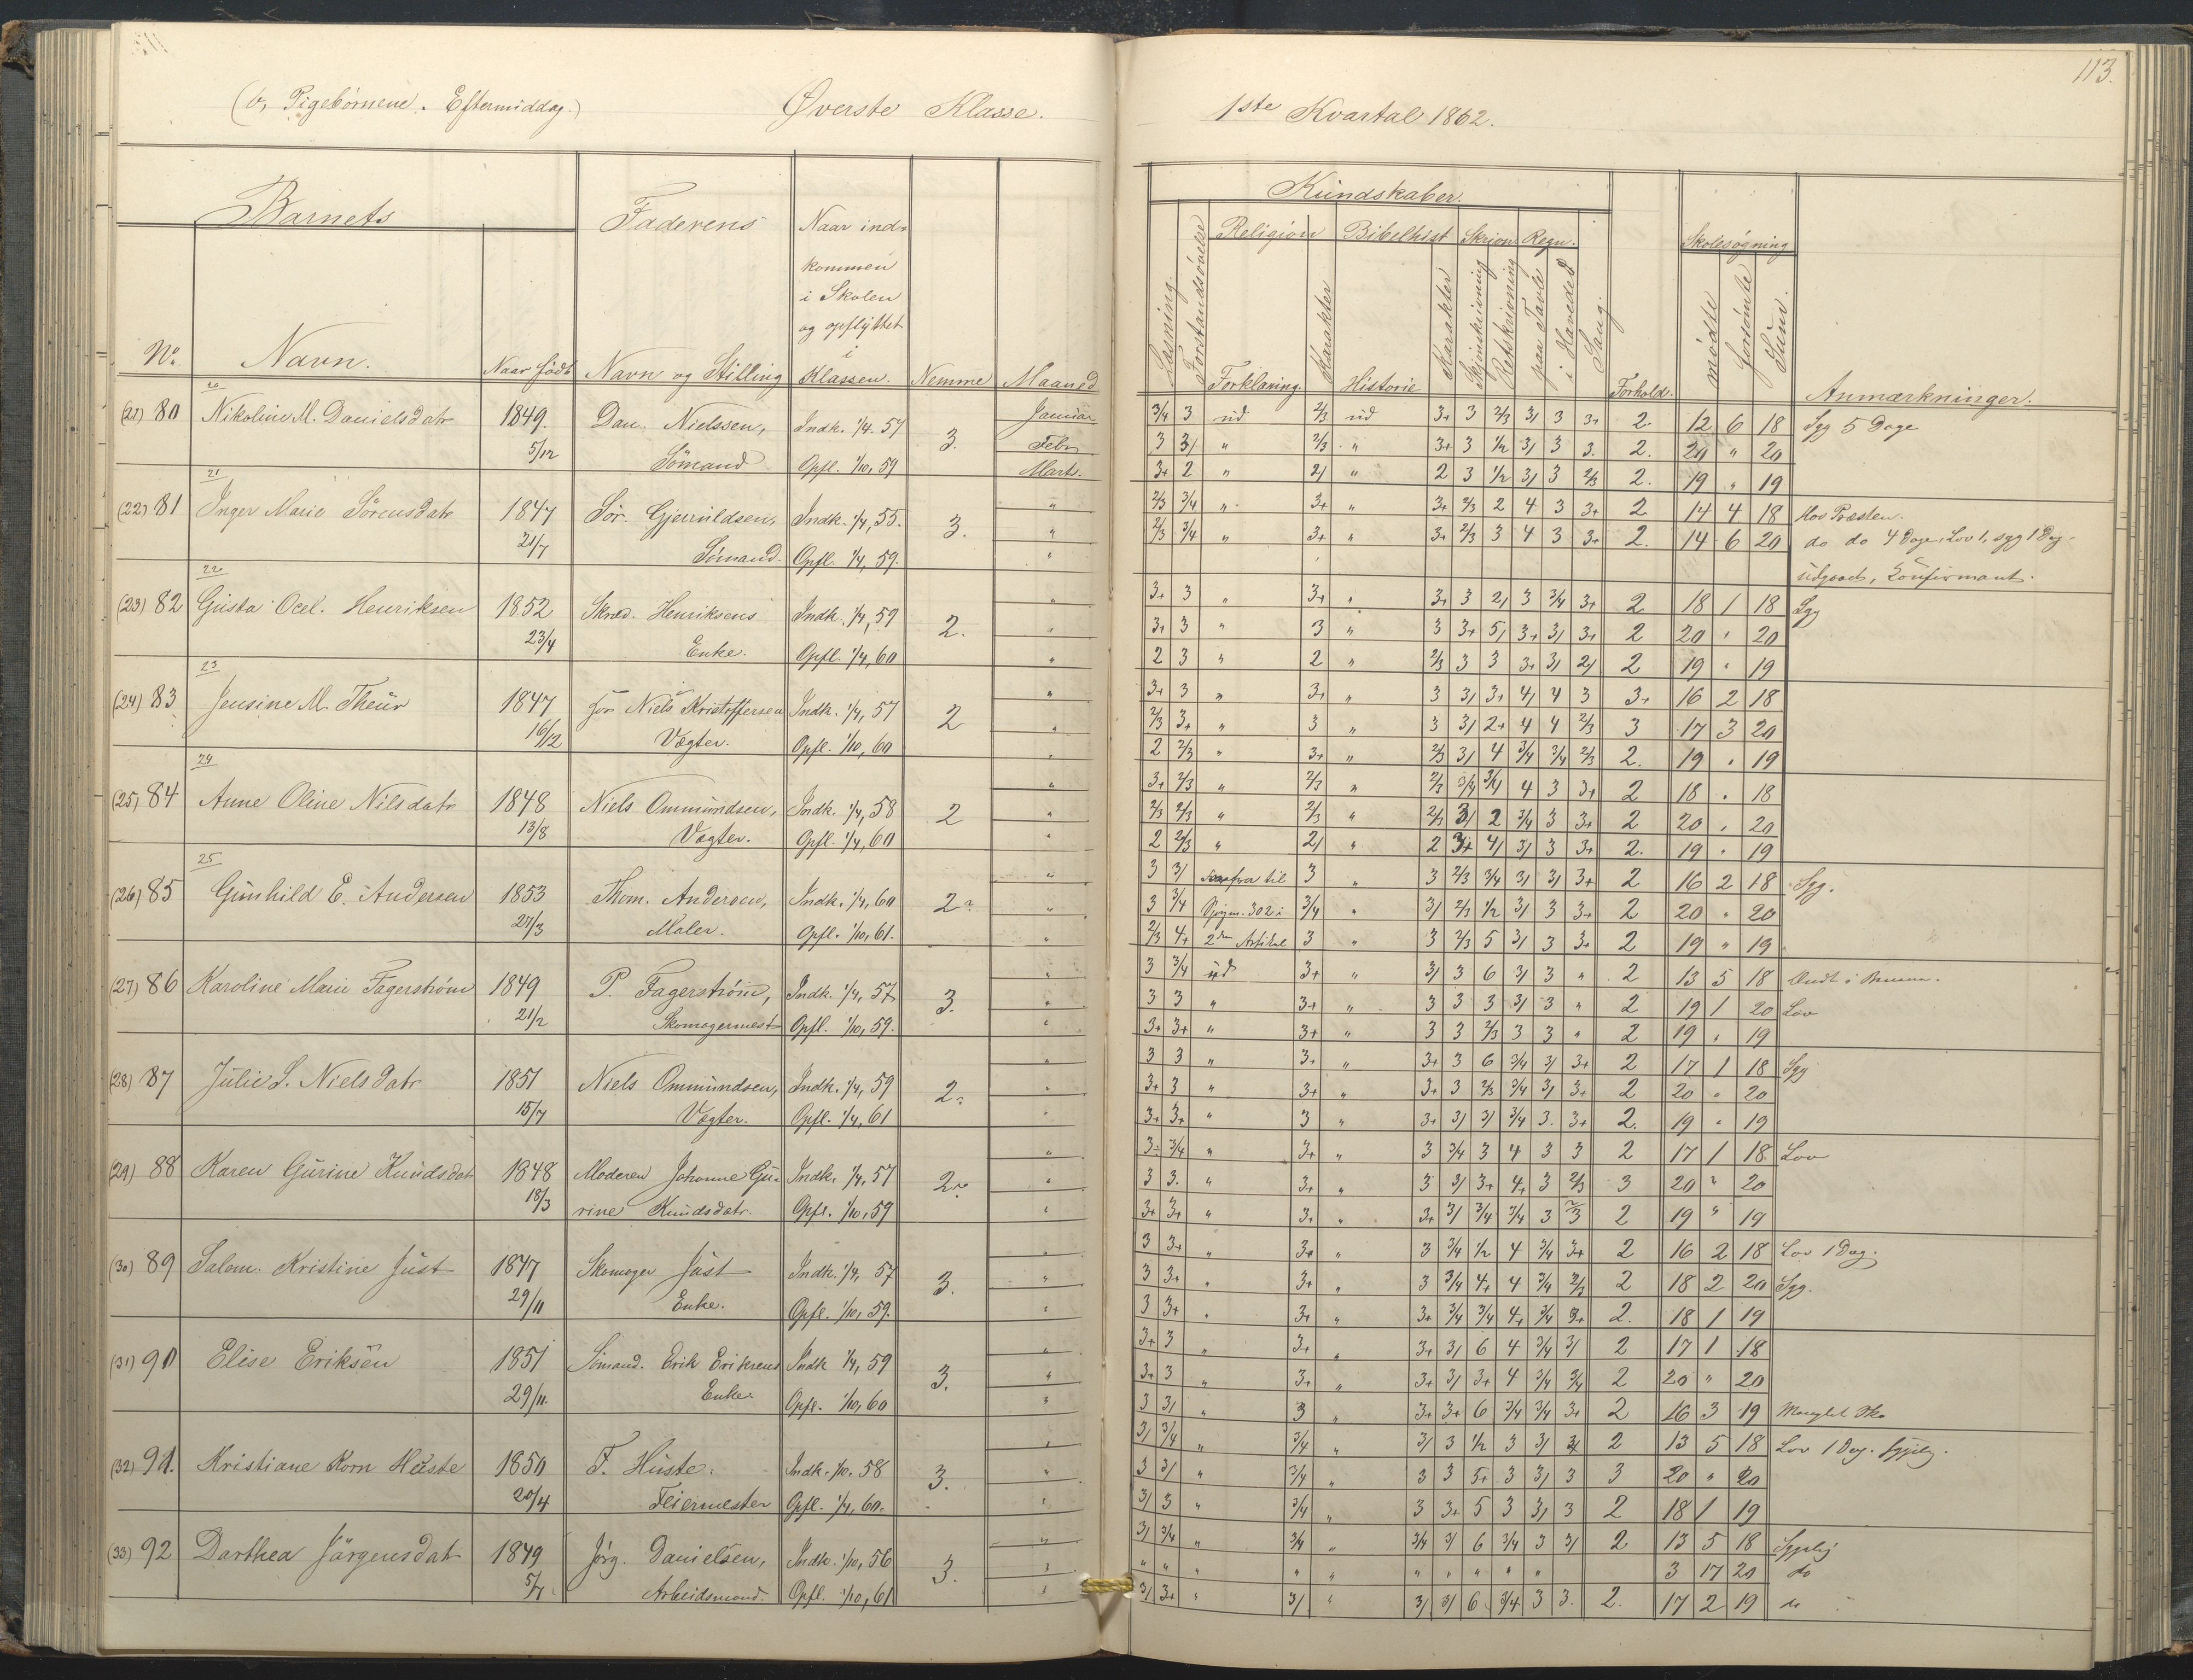 (b, Pigebørnene. Eftermiddag.) Øverste Klasse.
Barnets Faderens Naar ind-
kommen
i Skolen
og opflyttet
i
No. Navn. Naar født Navn og Stilling Klassen. Nemme Maaned
20
(21) 80 Nikoline M. Danielsdatr 1849. Dan. Nielssen, Indk. 1/4. 57 3. Januar
5/12 Sømand Opfl. 1/10, 59 Febr.
Marts.
21
(22) 81 Inger Marie Sörensdatr 1847 Sør. Gjeruldsen, Indk. 1/4, 55. 3. "
21/7 Sömand. Opfl. 1/4, 59. "
22
(23) 82 Gusta Ocel. Henriksen 1852 Skræd. Henriksens Indk. 1/4, 59 2. "
23/4 Enke. Opfl. 1/4, 60 "
23
(24) 83 Jensine M. Theur 1847 for Niels Kristoffersen Indk. 1/4, 57 2 "
16/12 Vægter. Opfl. 1/10, 60 "
24
(25) 84 Anne Oline Nilsdatr 1848 Niels Ommundsen, Indk. 1/4, 58 2 "
13/8 Vægter. Opfl. 1/4, 60 "
25
(26) 85 Gunhild E. Andersen 1853 Thom. Andersen, Indk. 1/4, 60 2 "
27/3 Maler. Opfl. 1/10, 61. "
(27) 86 Karoline Marie Fagerstrøm 1849 P. Fagerstrøm, Indk. 1/4, 57 3. "
21/2 Skomagermest Opfl. 1/10, 59. "
(28) 87 Julie S. Nielsdatr 1851 Niels Ommundsen, Indk. 1/4, 59 2 "
15/7 Vægter. Opfl. 1/4, 61 "
(29) 88 Karen Gurine Knudsdat 1848 Moderen Johanne Gu- Indk. 1/4, 57 2 "
18/3 rine Knudsdatr. Opfl. 1/10, 59 "
(30) 89 Salem. Kristine Just 1847 Skomager Just Indk. 1/4, 57 3. "
29/11 Enke. Opfl. 1/10, 59. "
(31) 90 Elise Eriksen 1851 Sömand. Erik Eriksens Indk 1/4, 59 3. "
29/11. Enke. Opfl. 1/10, 60 "
(32) 91. Kristiane Korn Huste 1850 F. Huste. Indk. 1/10. 58 3. "
20/4 Feiermester Opfl. 1/4, 60. "
(33) 92 Darthea Jörgensdat 1849 Jörg. Danielsen, Indk. 1/10, 56 3. "
5/7 Arbeidsmand. Opfl. 1/10, 61 "
113.
1ste Kvartal 1862.
Kundskaber.
Religion Bibelhist Skrivn. Regn. Skolesøgning
Læsning. Forstandsøvelse Forklaring. Karakter Historie Karakter Skjønskrivning Retskrivning paa Tavle i Hovedet Sang. Forhold. mødte forsømte Sum. Anmærkninger.
3/4 3 ud 2/3 ud 3+ 3 2/3 3/ 3 3+ 2. 12 6 18 Syg 5 Dage
3 3/ " 2/3 " 3+ 3 1/2 3/ 3 3. 2. 20 " 20
3+ 2 " 2/ " 2 3 1/2 3/ 3 2/3 2. 19 " 19
2/3 3/4 " 3+ " 3+ 2/3 2 4 3 3+ 2 14 4 18 Hos Præsten.
2/3 3/4 " 3+ " 3+ 2/3 3 4 3 3+ 2. 14 6 20 do do 4 Dage, Lov 1, syg 1 Dag
udgaaet, Konfirmant.
3+ 3 " 3+ " 3+ 3 2/ 3 3/4 3+ 2 18 1 18 Syg
3+ 3 " 3 " 3 3+ 5/ 3+ 3/ 3+ 2 20 " 20
2 3 " 2 " 2/3 3 3 3+ 3/ 2/ 2 19 " 19
3+ 3 " 3+ " 3 3/ 3+ 4/ 4 3 3+ 16 2 18
2/3 3+ " 3 " 3 3/ 2+ 4 4 2/3 3 17 3 20
2 2/3 " 3+ " 2/3 3/ 4 3/4 3/4 2/3 2. 19 " 19
3+ 2/3 " 2/3 " 2/3 3/4 3/4 4 3 3+ 2 18 " 18
2/3 2/3 " 2/3 " 2/3 3/ 2 3/4 3 3+ 2 20 " 20
2 2/3 " 2/ " 2 3+ 4/ 3/ 3 3+ 2. 19 " 19
3 3/ til 3 " 3 2/3 3/4 3/ 3/ 3+ 2 16 2 18 Syg.
3 3/4 302 i 3/4 " 3/ 2/3 1/2 3/ 3 3+ 2 20 " 20
2/3 4+ 2den Artikel 3 " 3 2/3 5 3/ 3 3+ 2 19 " 19
3 3/4 ud 3+ " 3/ 3 6 3/ 3 " 2 13 5 18 Ondt i
3 3 " 3+ " 3 3 3 3/ 3 " 2 19 1 20 Lov
3+ 3+ " 3+ " 3 3 2/3 3 3 " 2 19 " 19
3 3 " 3+ " 3+ 3 6 3/4 3/ 3+ 2 17 1 18 Syg
3+ 3 " 3+ " 3+ 3 2/3 3/4 3/ 3+ 2 20 " 20
3+ 3+ " 3 " 3+ 3/ 3/ 3/4 3. 3+ 2. 19 " 19
3 3/4 " 3+ " 3 3/4 3 4 3 3 2 17 1 18 Lov
3 3. " 3+ " 3 3/ 3+ 4+ 3 2/3 3 20 " 20
3+ 3+ " 3+ " 3+ 3/ 3/4 3/4 3 2/3 2 19 " 19
3 3+ " 3+ " 3 3/4 1/2 4 3/4 3+ 2 16 2 18 Lov 1 Dag.
3 3+ " 3+ " 3 3/4 4+ 4 3/4 2/3 2 18 2 20 Syg.
3 3+ " 3+ " 3+ 3/4 3/4 4+ 3/4 3+ 2. 18 1 19
3+ 3 " 3+ " 3+ 3/ 6 4 3/4 3/ 2 17 1 18
3+ 3 " 3+ " 3+ 3/ 3+ 4 3/4 3/4 2 20 " 20
3 3/ " 3 " 3+ 3+ 6 3/4 3/4 3+ 2 16 3 19 Manglet Sko
3/ 3/4 " 3/4 " 3/ 3 1/2 3 3/ 3/ 2 13 5 18 Lov 1 Dag.
3 3/ " 3/4 " 3 3 5+ 3 3/ 3 3 20 " 20
3/ 3 " 3/4 " 3 3+ 5 3 3/ 3 2 18 1 19
3/ 3/4 " 3/4 " 3/4 3/ 6 3/4 3 3/ 2 13 5 18 Sygelig
" " " " " " " " " " 3 17 20 do
3/ 3+ " 3/ " 3/ 3/ 6 3/4 3 3. 2. 17 2 19